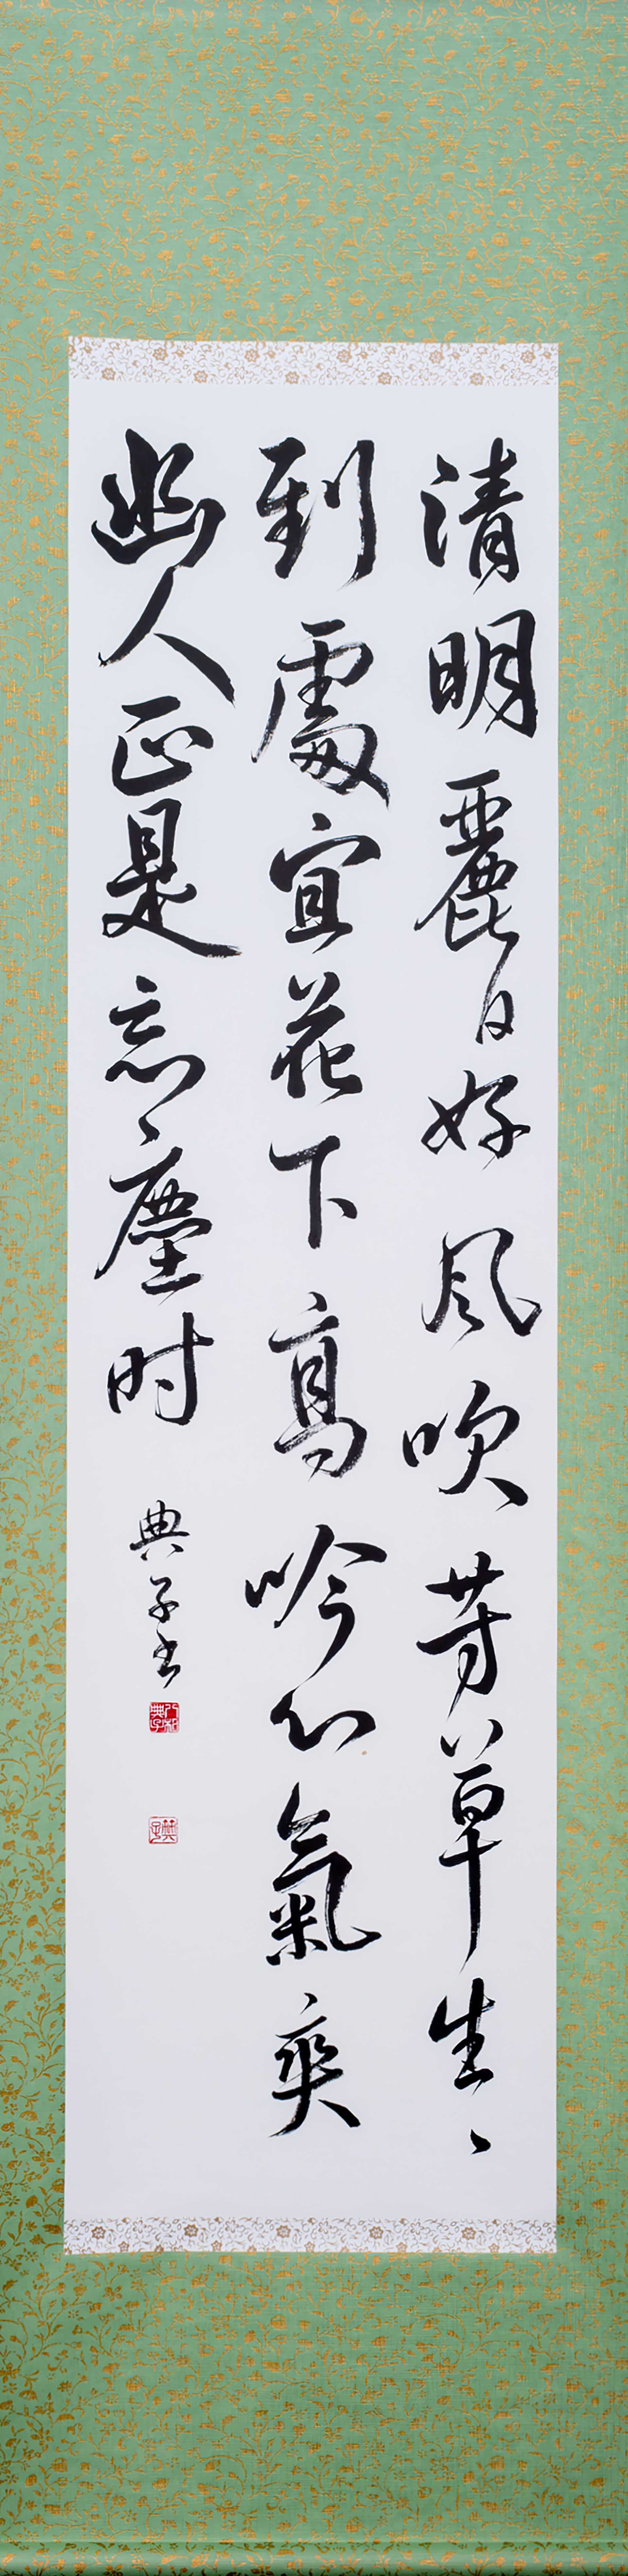 清明麗日好風吹芳草生々
到處宜花下高吟心氣爽
幽人正是忘塵时
典子书